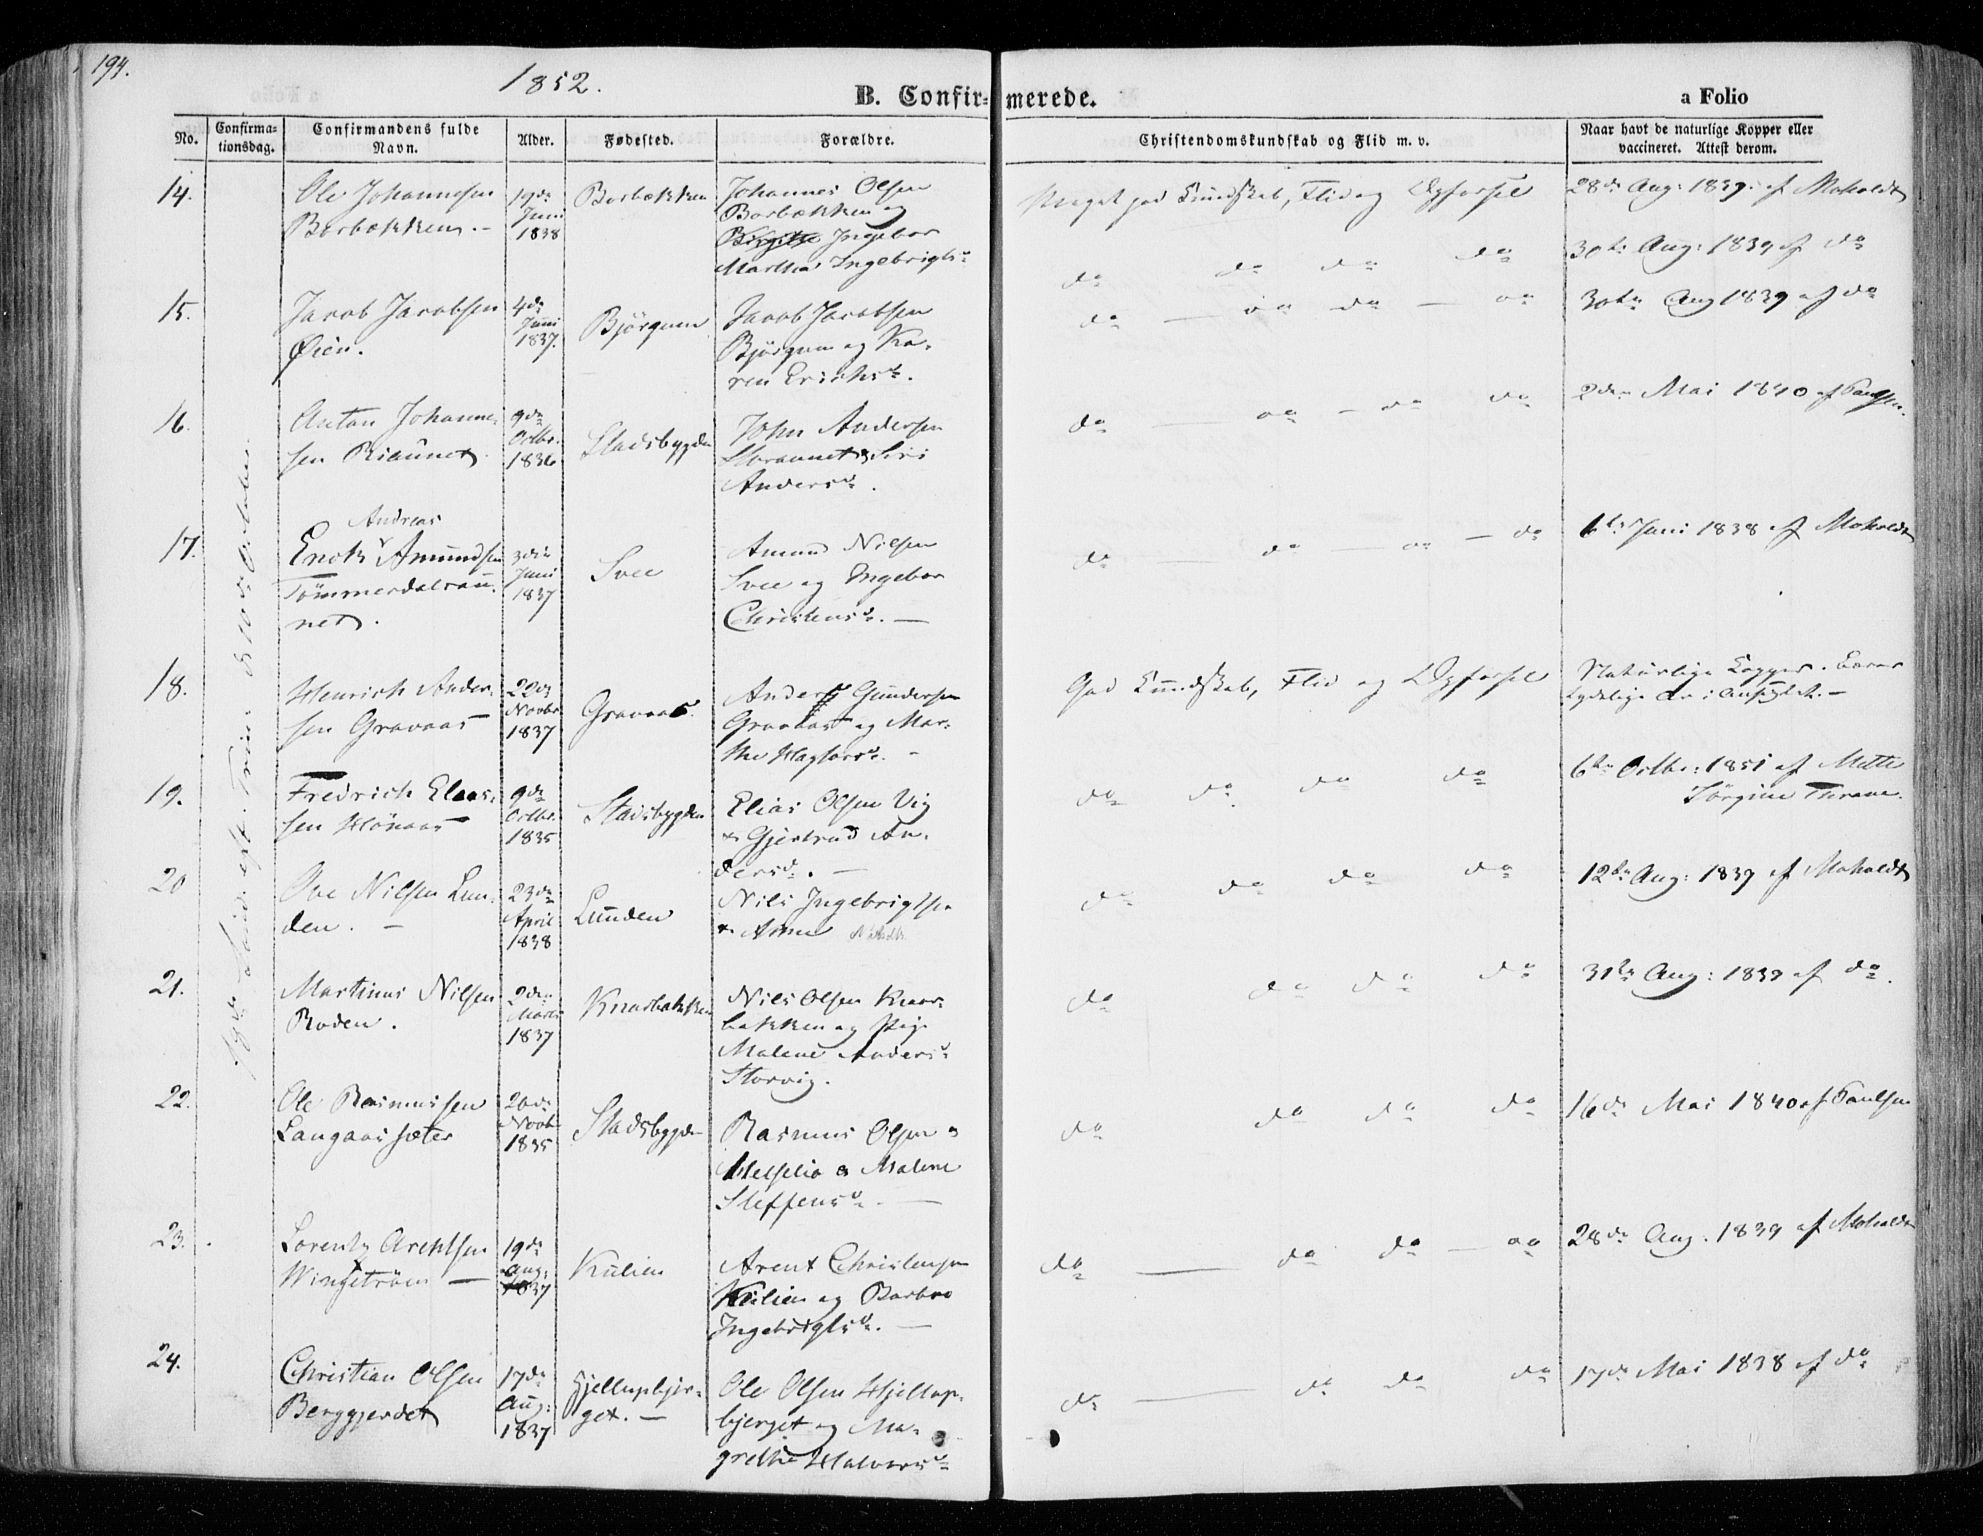 194.
1852.
B. Confir-merede.
a Folio
No.
Confirma-
tionsdag.
Confirmandens fulde
Navn.
Alder.
Fødested.
Forældre.
Christendomskundskab og Flid m. v.
Naar havt de naturlige Kopper eller
vaccineret. Attest derom.
14.
Ole Johannesen
Borbækken. -
19de
Juni
1838
Borbækken
Johannes Olsen
Borbækken og
Birgitte Ingebor
Martha Ingebrigtsd.
Meget god Kundskab, Flid og Opførsel
28de Aug: 1839 af Moholdt
do do do do
30te Aug: 1839 af do
15.
Jacob Jacobsen
Øien.
4de
Juni
1837.
Bjørgum
Jacob Jacobsen
Bjørgum og Ka-
ren Erichsd.
do — do do — do
30te Aug 1839 af do
16.
Anton Johanne-
sen Risaunet
9de
Octbr.
1836
Stadsbygden
John Andersen
Storaunet & Siri
Andersd.
do — do — do do
2den Mai 1840 af Paulsen.
17.
Andreas
Erich Amundsen
Tømmerdalsau-
net.
3die
Juni
1837
Svee
Amund Nilsen
Svee og Ingebor
Christensd. —
do — do — do — do
6te Juni 1838 af Moholdt
18.
Henrich Ander-
sen Gravaas
22de
Novbr
1837
Gravaas.
Anders Gundersen
Gravaas og Mar-
the Hagtorsd. -
God Kundskab, Flid og Opførsel
Naturlige Kopper. Bærer
tydelige Ar i Ansigtet. —
19.
Fredrich Elias-
sen Hønaas
9de
Octbr.
1835
Stadsbygden
Elias Olsen Vig
& Gjertrud An-
dersd. —
do do do do
6te Octbr: 1851 af Mette
Jørgine Thrane.
20
Ove Nilsen Lun-
den. —
23de
April
1838
Lunden
Nils Ingebrigtsen
& Anne
do do do do
12te Aug: 1839 af Moholdt
21.
Martinus Nilsen
Roden.
2den
Marts
1837
Knarbakken
Nils Olsen Knar-
bakken og Pige
Malene Andersd.
Storvig.
do do do do
31te Aug: 1839 af do.
22.
Ole Rasmussen
Langaassæter
20de
Novbr
1835
Stadsbygden
Rasmus Olsen
& Malene
Steffensd. —
do do do do
16de Mai 1840 af Paulsen
23.
Lorentz Arentsen
Wingstrøm —
19de
Aug:
1837
Kulien
Arent Christensen
Kulien og Barbro
Ingebrigtsd. —
do — do do — do
28de Aug. 1839 af Moholdt
24.
Christian Olsen
Berggjerdet
17de
Aug:
1837
Hjellupbjer-
get. —
Ole Olsen Hjellup-
bjerget og Ma-
grethe Halvorsd.
do — do do do
17de Mai 1838 af do